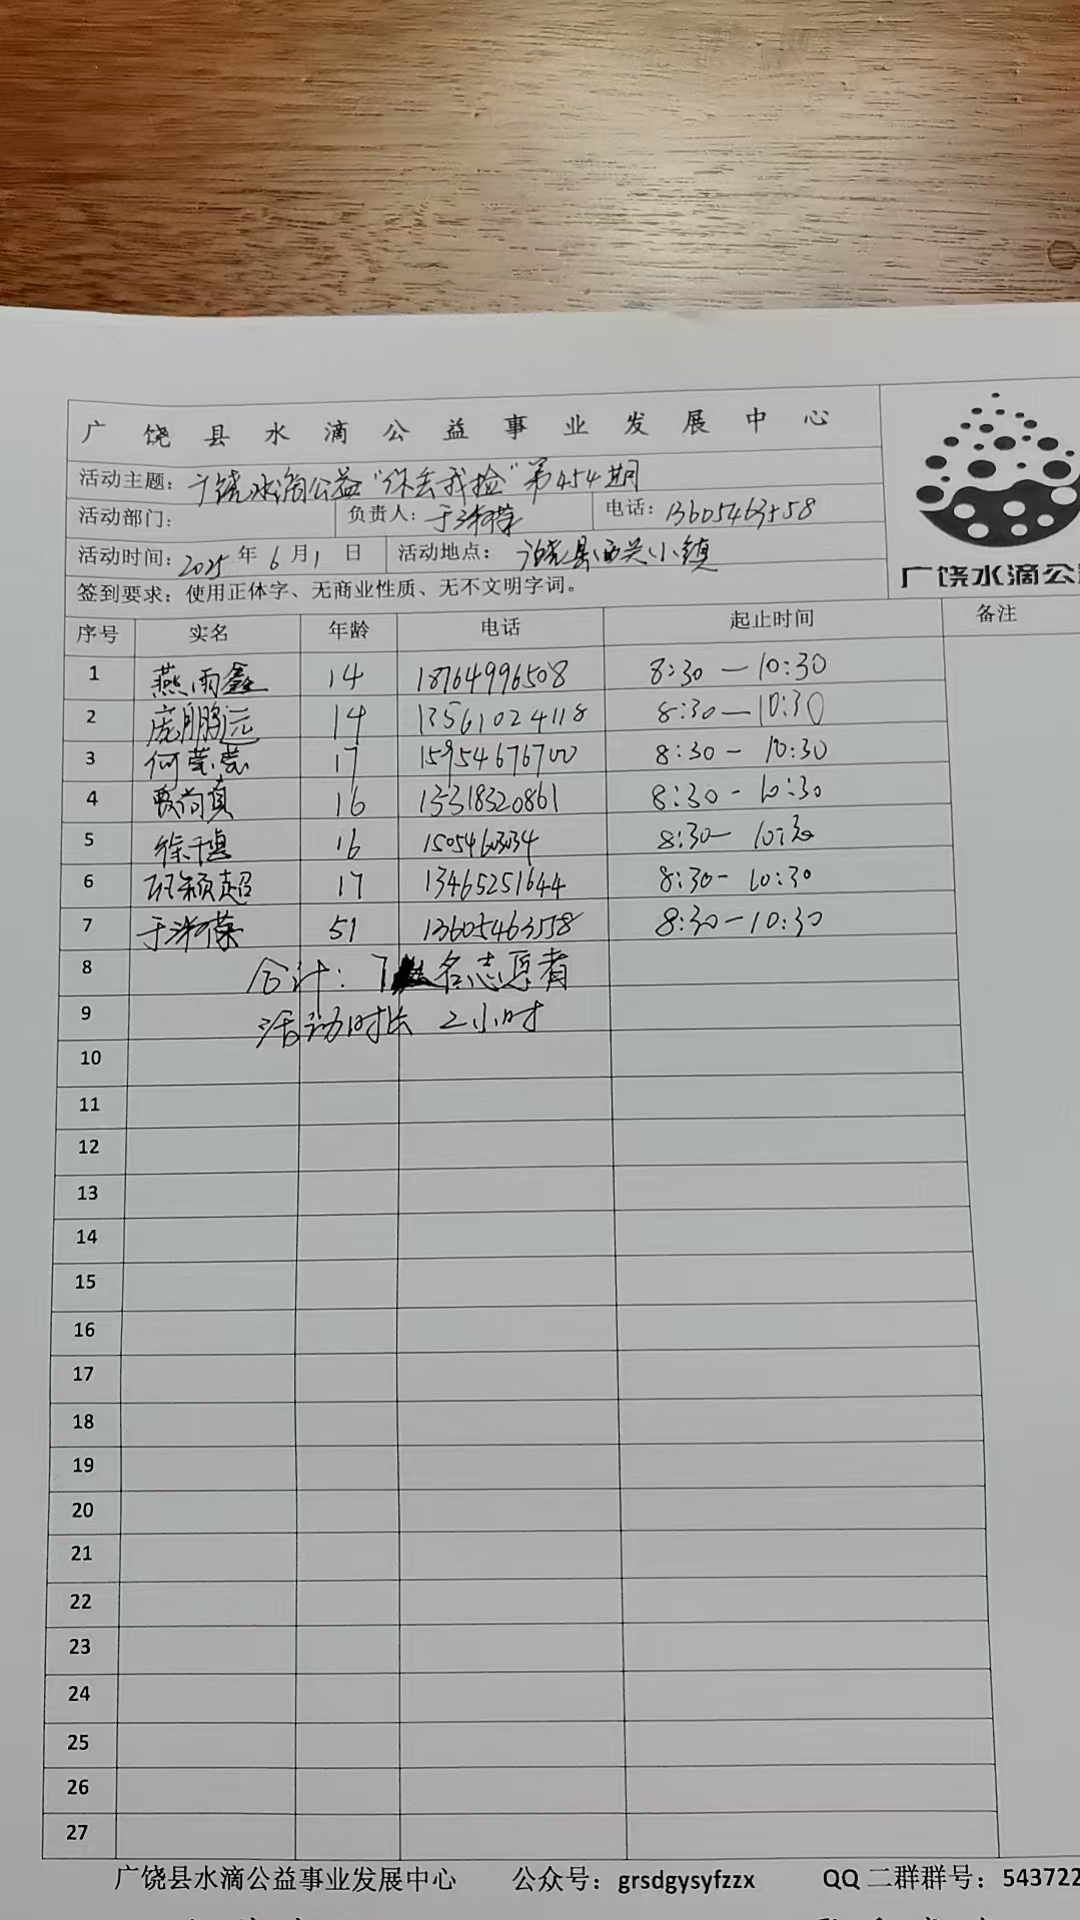 广饶县水滴公益事业发展中心
活动主题：广饶水滴公益"你丢我捡"第454期
活动部门： 负责人：于洪荣 电话：13605463558
活动时间：2025年6月1日 活动地点：广饶县西关小镇
广饶水滴公
签到要求：使用正体字、无商业性质、无不文明字词。
序号 实名 年龄 电话 起止时间 备注
1 燕雨鑫 14 18764996508 8:30—10:30
2 庞鹏远 14 13561024118 8:30—10:30
3 何莹莹 17 15954676700 8:30-10:30
4 16 13318320861 8:30-10:30
5 徐 16 15054603034 8:30—10:30
6 颖超 17 13465251644 8:30-10:30
7 于洪荣 51 13605463558 8:30—10:30
8 合计：7名志愿者
9 活动时长 2小时
10
11
12
13
14
15
16
17
18
19
20
21
22
23
24
25
26
27
广饶县水滴公益事业发展中心 公众号：grsdgysyfzzx QQ二群群号：543722